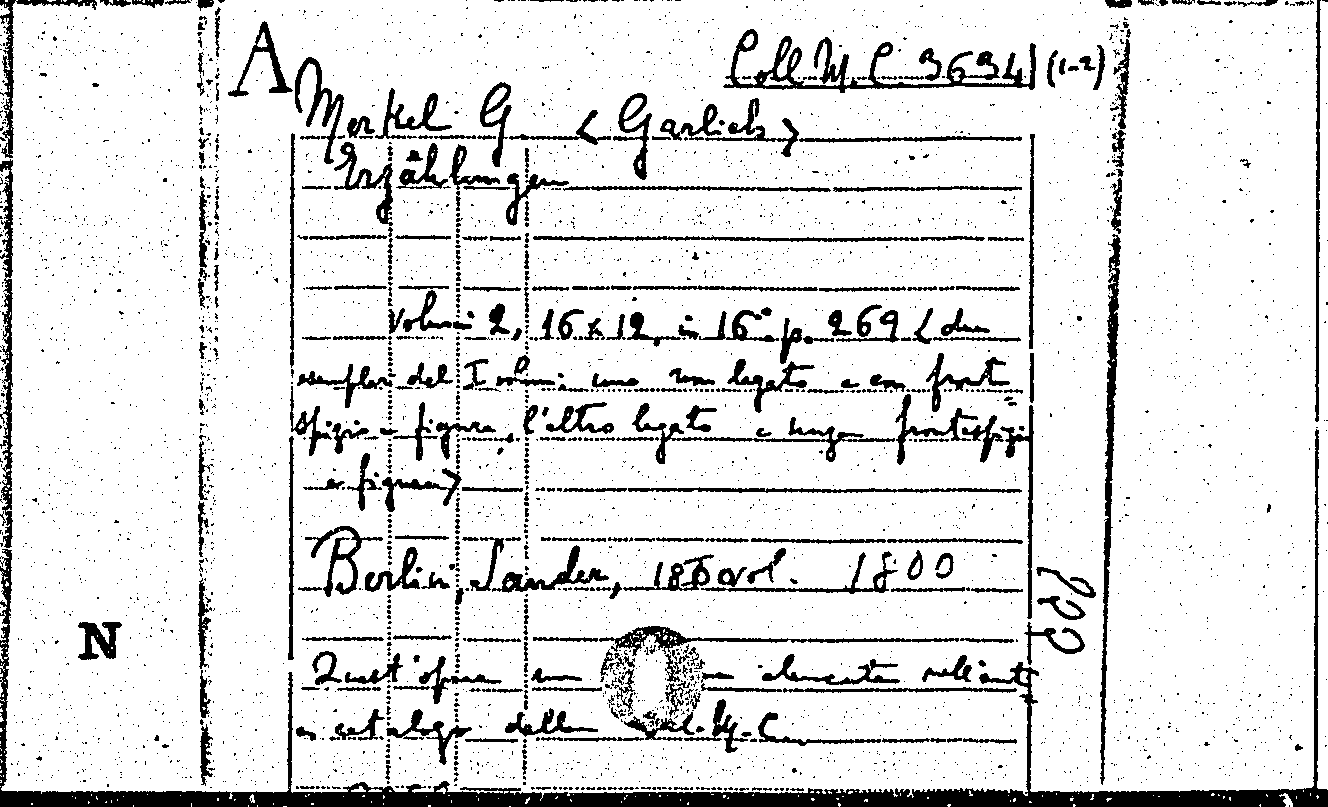 A
Coll M. C 3634 (1-2)
Merkel G. < Garlieb >
Erzählungen
Volumi 2, 16 x 12, in 16° p. 269 < due
esemplari del I volume: uno non legato e con fronti=
spizio e figura, l'altro legato e senza frontespizio
e figura >
Berlin, Sander, 1800 vol. 1800
N
Quest'opera non elencata nell'anti=
co catalogo della Col. M. C.